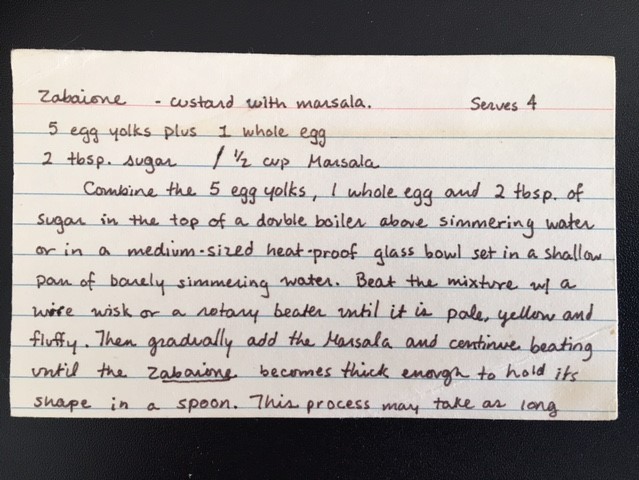 Zabaione - custard with marsala. Serves 4
5 egg yolks plus 1 whole egg
2 tbsp. sugar / ½ cup Marsala
Combine the 5 egg yolks, 1 whole egg and 2 tbsp. of
sugar in the top of a double boiler above simmering water
or in a medium-sized heat-proof glass bowl set in a shallow
pan of barely simmering water. Beat the mixture w/ a
wire wisk or a rotary beater until it is pale, yellow and
fluffy. Then gradually add the Marsala and continue beating
until the Zabaione becomes thick enough to hold its
shape in a spoon. This process may take as long